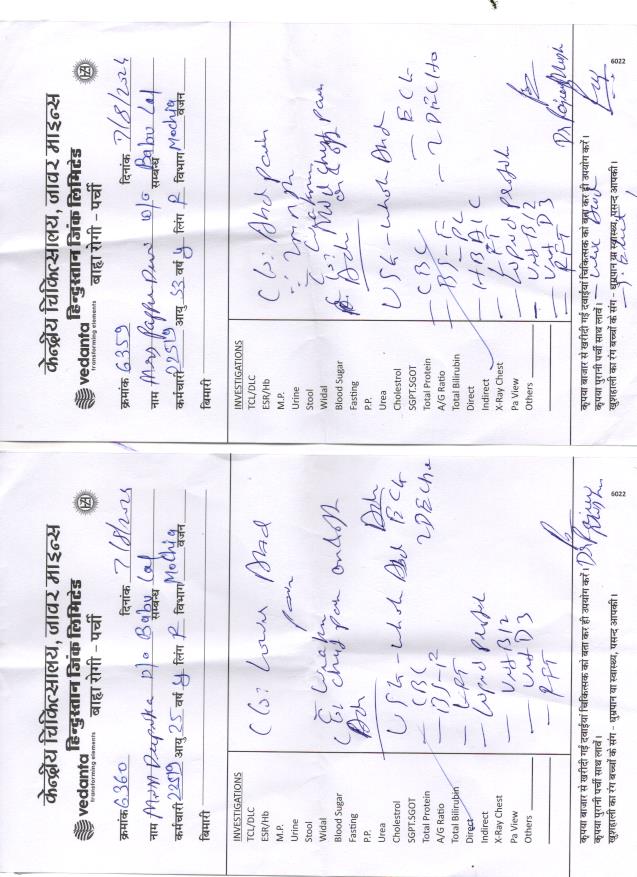 केन्द्रीय चिकित्सालय, जावर माइन्स
vedanta हिन्दुस्तान जिंक लिमिटेड
transforming elements
बाह्य रोगी - पर्ची
क्रमांक 6359 दिनांक 7/8/2024
नाम Mrs Pappu Devi W/o Babu Lal
सम्बन्ध
कर्मचारी 22519 आयु 53 वर्ष y लिंग F विभाग Mochia
वजन
बिमारी
INVESTIGATIONS
TCL/DLC
ESR/Hb
M.P.
Urine
Stool
Widal
Blood Sugar
Fasting
P.P.
Urea
Cholestrol
SGPT.SGOT
Total Protein
A/G Ratio
Total Bilirubin
Direct
Indirect
X-Ray Chest
Pa View
Others
C/o: Abd pain
chest pain
Adv
USG - whole Abd
- CBC - ECG
- BS - F - 2 D ECHO
- HBA1C
- LFT
- Lipid Profile
- Vit B12
- Vit D3
- RFT
कृपया बाजार से खरीदी गई दवाईयां चिकित्सक को बता कर ही उपयोग करें।
कृपया पुरानी पर्ची साथ लावें।
खुशहाली का रंग बच्चों के संग - धूम्रपान या स्वास्थ्य, पसन्द आपकी।
6022
केन्द्रीय चिकित्सालय, जावर माइन्स
vedanta हिन्दुस्तान जिंक लिमिटेड
transforming elements
बाह्य रोगी - पर्ची
क्रमांक 6360 दिनांक 7/8/2024
नाम Deepika D/o Babu Lal
सम्बन्ध
कर्मचारी 22519 आयु 25 वर्ष y लिंग F विभाग Mochia
वजन
बिमारी
INVESTIGATIONS
TCL/DLC
ESR/Hb
M.P.
Urine
Stool
Widal
Blood Sugar
Fasting
P.P.
Urea
Cholestrol
SGPT.SGOT
Total Protein
A/G Ratio
Total Bilirubin
Direct
Indirect
X-Ray Chest
Pa View
Others
C/o: Lower Abd
pain
chest pain on & off
Adv
USG - whole Abd
- CBC ECG
- BS - F 2D ECHO
- LFT
- Lipid Profile
- Vit B12
- Vit D3
- RFT
कृपया बाजार से खरीदी गई दवाईयां चिकित्सक को बता कर ही उपयोग करें।
कृपया पुरानी पर्ची साथ लावें।
खुशहाली का रंग बच्चों के संग - धूम्रपान या स्वास्थ्य, पसन्द आपकी।
6022